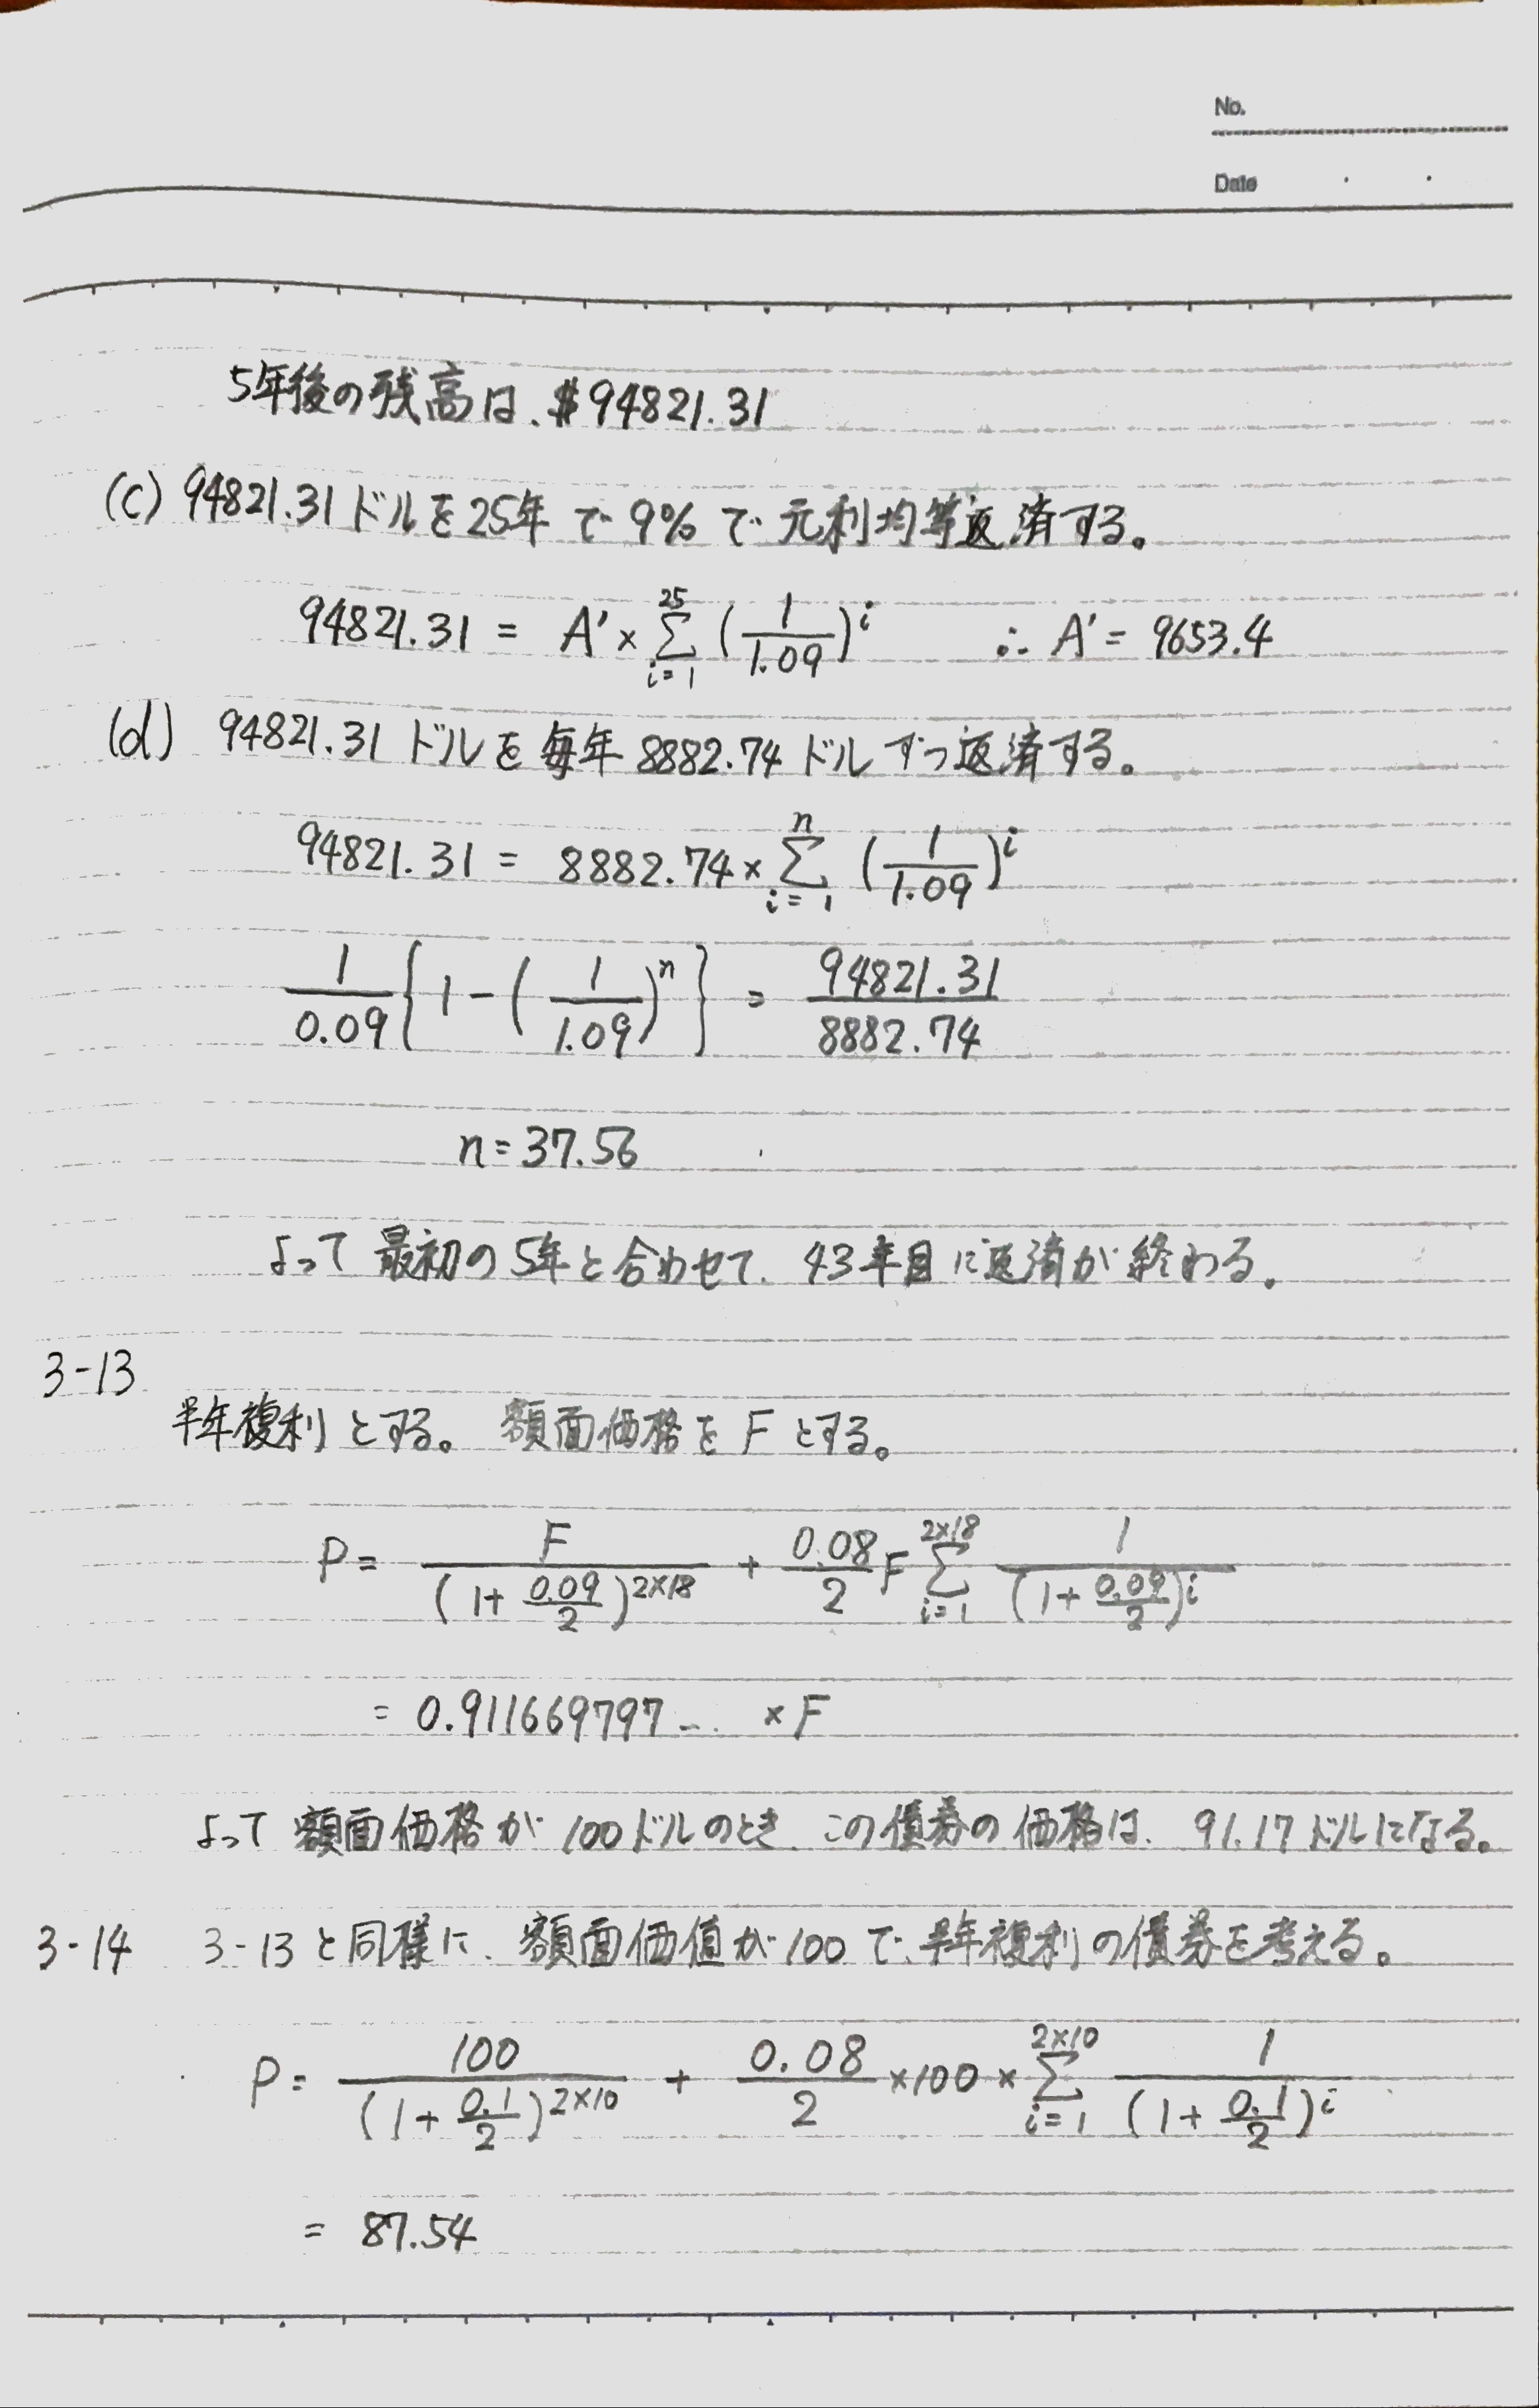 No.
Date
5年後の残高は、$94821.31
(c) 94821.31ドルを25年で9%で元利均等返済する。
94821.31 = A' × \sum_{i=1}^{25} (\frac{1}{1.09})^i ∴ A' = 9653.4
(d) 94821.31ドルを毎年8882.74ドルずつ返済する。
94821.31 = 8882.74 × \sum_{i=1}^{n} (\frac{1}{1.09})^i
\frac{1}{0.09} \{ 1 - (\frac{1}{1.09})^n \} = \frac{94821.31}{8882.74}
n = 37.56
よって最初の5年と合わせて、43年目に返済が終わる。
3-13
半年複利とする。額面価格をFとする。
P = \frac{F}{(1 + \frac{0.09}{2})^{2×18}} + \frac{0.08}{2} F \sum_{i=1}^{2×18} \frac{1}{(1 + \frac{0.09}{2})^i}
= 0.911669797... × F
よって額面価格が100ドルのとき、この債券の価格は、91.17ドルになる。
3-14 3-13と同様に、額面価値が100で、半年複利の債券を考える。
P = \frac{100}{(1 + \frac{0.1}{2})^{2×10}} + \frac{0.08}{2} × 100 × \sum_{i=1}^{2×10} \frac{1}{(1 + \frac{0.1}{2})^i}
= 87.54